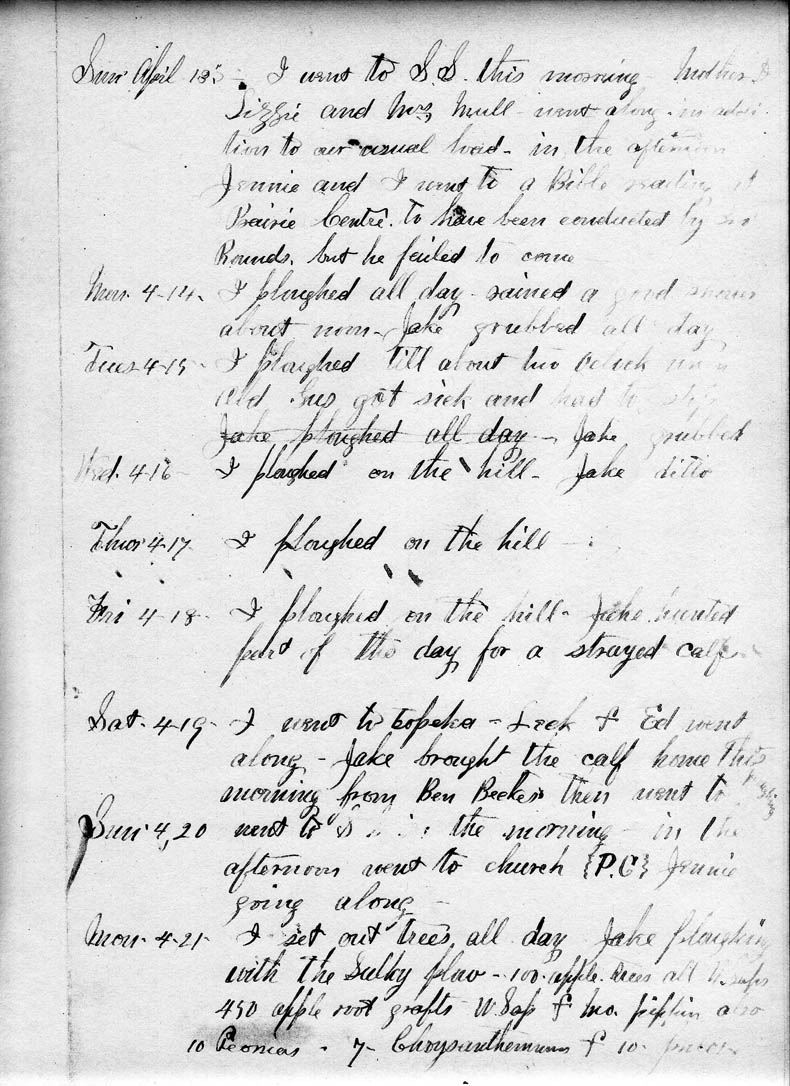 Sun April 13 - I went to S.S. this morning - Mother &
Lizzie and Mrs Mull - went along - in addi-
tion to our usual load - in the afternoon
Jennie and I went to a Bible reading at
Prairie Centre. to have been conducted by
Rounds. but he failed to come -
Mon. 4-14. I ploughed all day - rained a good shower
about noon - Jake grubbed all day
Tues 4-15 - I ploughed till about two oclock when
Old Gus got sick and had to stop
Jake ploughed all day - Jake grubbed
Wed. 4-16 - I ploughed on the hill - Jake ditto
Thur 4-17 I ploughed on the hill -
Fri 4-18 - I ploughed on the hill - Jake hunted
part of the day for a strayed calf -
Sat - 4-19 - I went to topeka - Leek & Ed went
along - Jake brought the calf home this
morning from Ben Beekes then went to
Sun 4,20 went to S the morning - in the
afternoon went to church {P.C} Jennie
going along -
Mon - 4-21 - I set out trees all day Jake ploughing
with the Sulky plow - 100 - apple trees all W. Saps
450 apple root grafts - W Sap & Mo. pippin also
10 Peonias - 7 - Chrysanthemum & 10 -